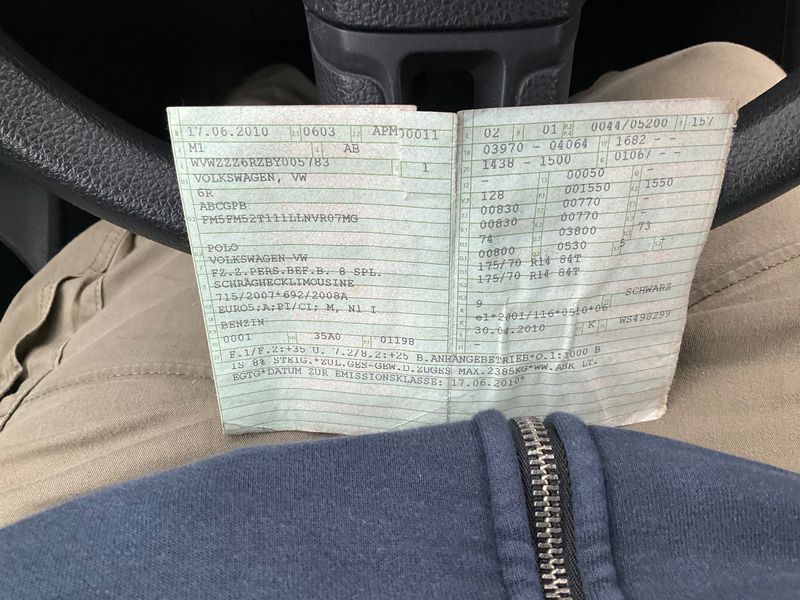 17.06.2010 0603 APM00011
M1 AB
WVWZZZ6RZBY005783 1
VOLKSWAGEN, VW
6R
ABCGPB
FM5FM52T111LLNVR07MG
POLO
VOLKSWAGEN-VW
FZ.Z.PERS.BEF.B. 8 SPL.
SCHRÄGHECKLIMOUSINE
715/2007*692/2008A
EURO5;A;PI/CI; M, N1 I
BENZIN
0001 35A0 01198
02 01 0044/05200 157
03970 - 04064 1682 - -
1438 - 1500 01067 - -
- 00050 -
128 001550 1550
00830 00770 -
00830 00770 -
74 03800 73
00800 0530 5 -
175/70 R14 84T
175/70 R14 84T
-
9 SCHWARZ
e1*2001/116*0510*06
30.04.2010 K WS498299
-
F.1/F.2:+35 U. 7.2/8.2:+25 B.ANHÄNGEBETRIEB*O.1:1000 B
IS 8% STEIG.*ZUL.GES-GEW.D.ZUGES MAX.2385KG*WW.AHK LT.
EGTG*DATUM ZUR EMISSIONSKLASSE: 17.06.2010*